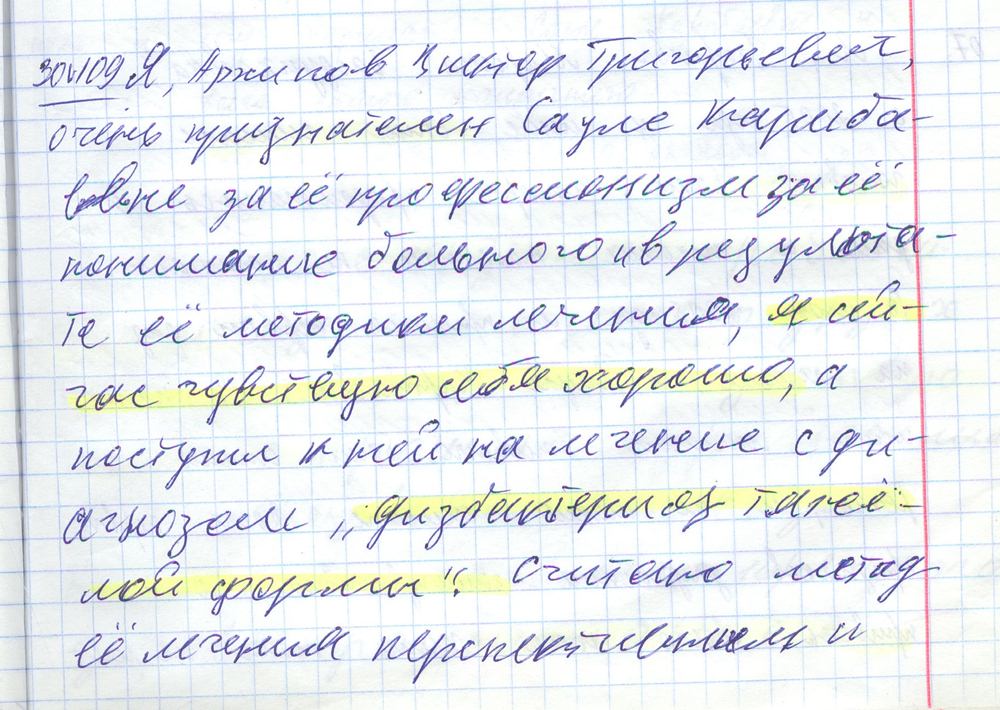 30/VI09 Я, Архипов Виктор Григорьевич,
очень признателен Сауле Кариба-
евне за её профессионизм за её
понимание больного и в результа-
те её методики лечения, я сей-
час чувствую себя хорошо, а
поступил к ней на лечение с ди-
агнозом „дизбактериоз тяжё-
лой формы". Считаю метод
её лечения перспективным и